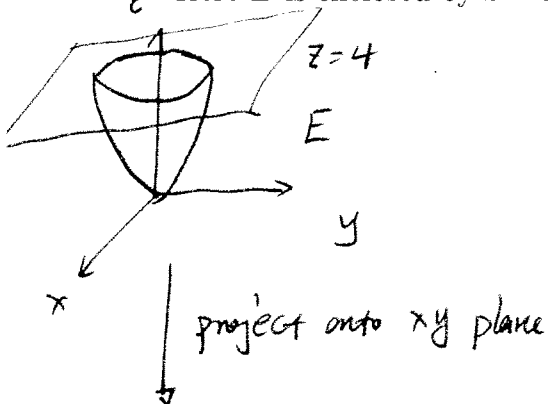 z
z=4
E
y
x
project onto xy plane